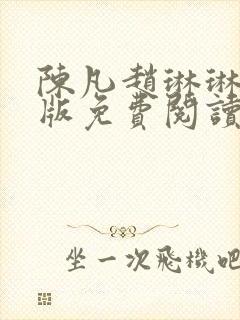 陳凡趙琳琳
版免費閱讀
坐一次飛機吧